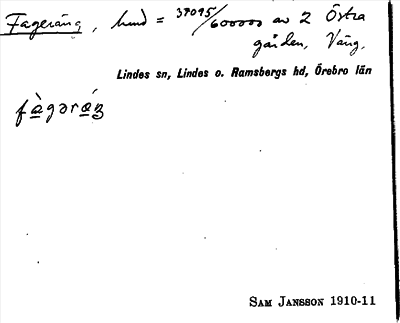 Fageräng, hmd = 37095/600000 av 2 Östra
gården, Väng.
Lindes sn, Lindes o. Ramsbergs hd, Örebro län
SAM JANSSON 1910-11